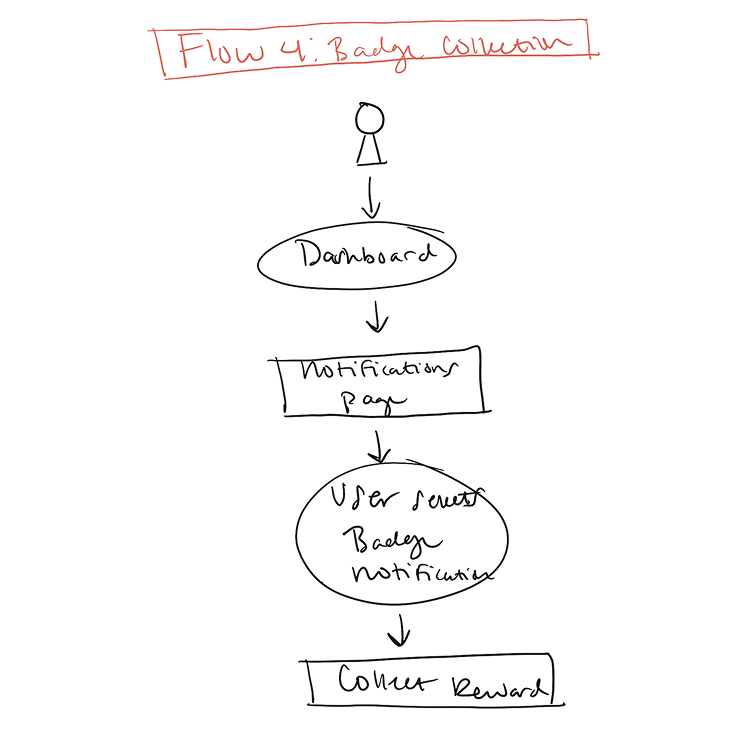 Flow 4: Badge Collection
Dashboard
Notifications
Page
User selects
Badge
Notification
Collect Reward